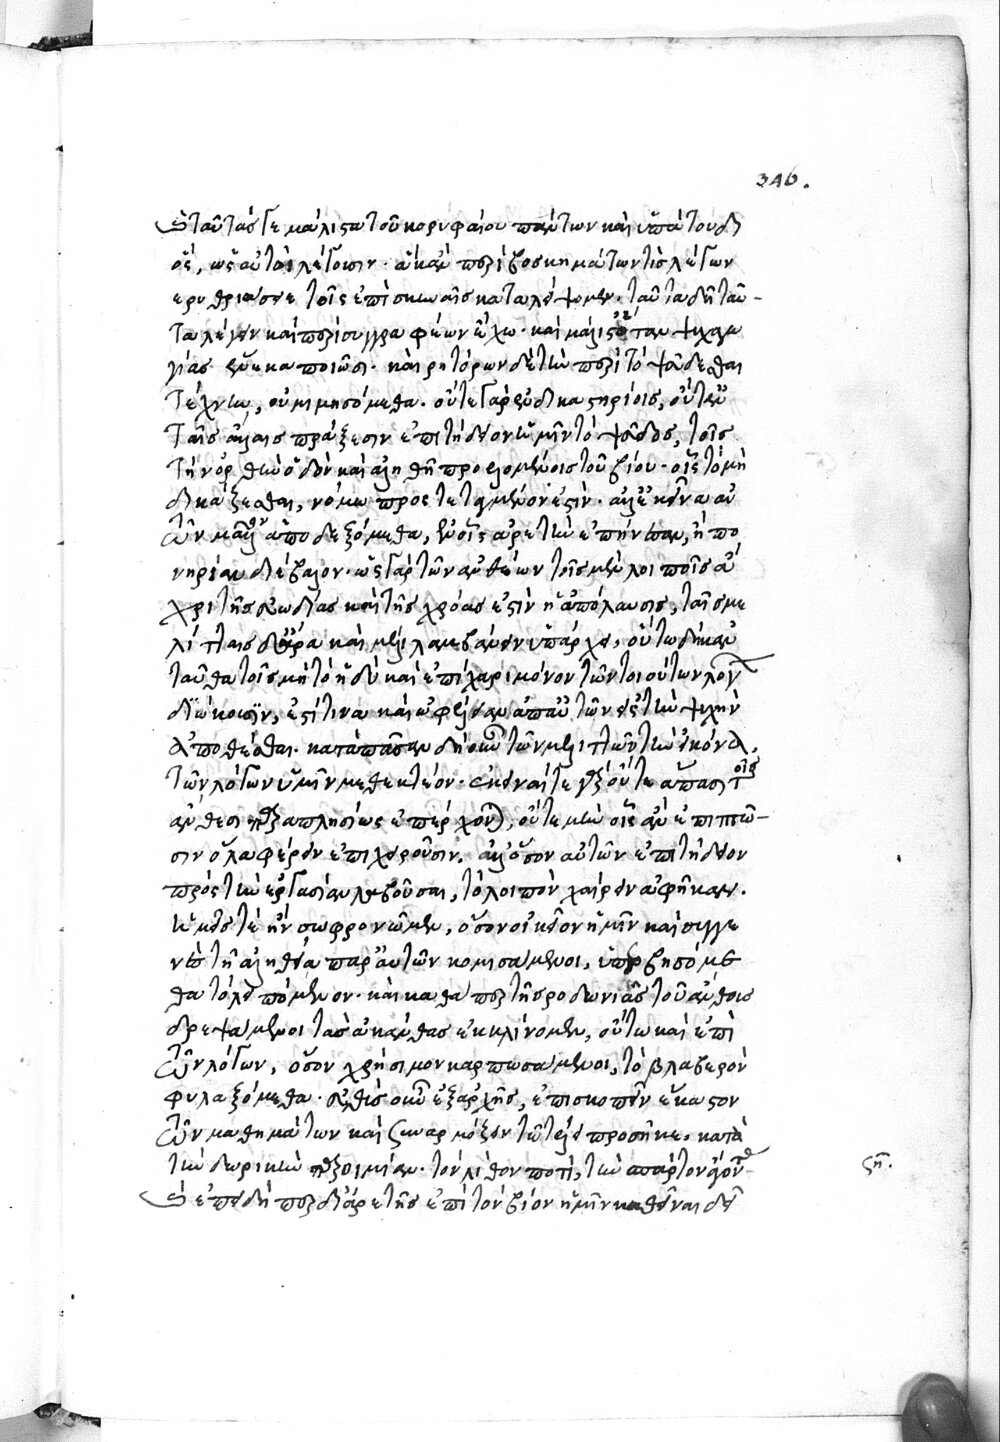 346.
καὶ ταύτας γε μάλιστα τοῦ κορυφαίου πάντων καὶ ὑπάτου δι
ός, ὡς αὐτοὶ λέγουσιν. ἃ κἂν περὶ βοσκημάτων τὶς λέγων
ἐρυθριάσειε τοῖς ἐπὶ σκηναῖς καταλείψομεν. ταῦτα δὴ ταῦ-
τα λέγειν καὶ περὶ συγγραφέων ἔχω. καὶ μάλισθ' ὅταν ψυχαγω
γίας ἕνεκα ποιῶσι. καὶ ῥητόρων δὲ τὴν περὶ τὸ ψεύδεσθαι
τέχνην, οὐ μιμησόμεθα. οὔτε γὰρ ἐν δικαστηρίοις, οὔτ' ἐν
ταῖς ἄλλαις πράξεσιν ἐπιτήδειον ἡμῖν τὸ ψεῦδος, τοῖς
τὴν ὀρθὴν ὁδὸν καὶ ἀληθῆ προελομένοις τοῦ βίου. οἷς τὸ μὴ
δικάζεσθαι, νόμω προστεταγμένον ἐστίν. ἀλλ' ἐκεῖνα αὐ
τῶν μᾶλλον ἀποδεξόμεθα, ἐν οἷς ἀρετὴν ἐπήνεσαν, ἢ πο
νηρίαν διέβαλον. ὡς γὰρ τῶν ἀνθέων τοῖς μὲν λοιποῖς ἄ
χρι τῆς εὐωδίας καὶ τῆς χρόας ἐστὶν ἡ ἀπόλαυσις, ταῖς με
λίτταις δ' ἄρα καὶ μέλι λαμβάνειν ὑπάρχει, οὕτω δὴ καν
ταῦθα τοῖς μὴ τὸ ἡδὺ καὶ ἐπίχαρι μόνον τῶν τοιούτων λόγων
διώκουσιν, ἔστί τινα καὶ ὠφέλειαν ἀπ' αὐτῶν εἰς τὴν ψυχὴν
ἀποθέσθαι. κατὰ πᾶσαν δὴ οὖν τῶν μελιττῶν τὴν εἰκόνα,
τῶν λόγων ὑμῖν μεθεκτέον. ἐκεῖναί τε γὰρ οὔτε ἅπασι τοῖς
ἄνθεσι παραπλησίως ἐπέρχονται, οὔτε μὴν οἷς ἂν ἐπιπτῶ-
σιν ὅλα φέρειν ἐπιχειροῦσιν. ἀλλ' ὅσον αὐτῶν ἐπιτήδειον
πρὸς τὴν ἐργασίαν λαβοῦσαι, τὸ λοιπὸν χαίρειν ἀφῆκαν.
ἡμεῖς τὲ ἢν σωφρονῶμεν, ὅσον οἰκεῖον ἡμῖν καὶ συγγε
νὲς τῆ ἀληθεία παρ' αὐτῶν κομισάμενοι, ὑπερβησόμε
θα τὸ λειπόμενον. καὶ καθάπερ τῆς ῥοδωνιᾶς τοῦ ἄνθους
δρεψάμενοι τὰς ἀκάνθας ἐκκλίνομεν, οὕτω καὶ ἐπὶ
τῶν λόγων, ὅσον χρήσιμον καρπωσάμενοι, τὸ βλαβερὸν
φυλαξόμεθα. εὐθὺς οὖν ἐξαρχῆς, ἐπισκοπεῖν ἕκαστον
τῶν μαθημάτων καὶ συναρμόζειν τῶ τέλει προσῆκε. κατὰ
τὴν δωρικὴν παροιμίαν. τὸν λίθον ποτὶ, τὴν σπάρτον ἄγοντες-
καὶ ἐπειδήπερ δι' ἀρετῆς ἐπὶ τὸν βίον ἡμῖν καθεῖναι δεῖ